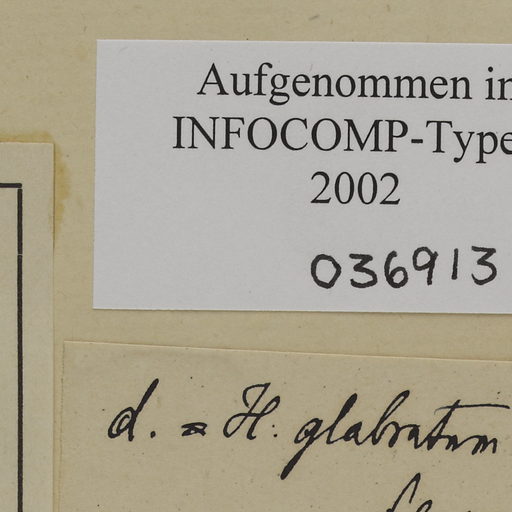 Aufgenommen in
INFOCOMP-Type
2002
036913
d. = H. glabratum